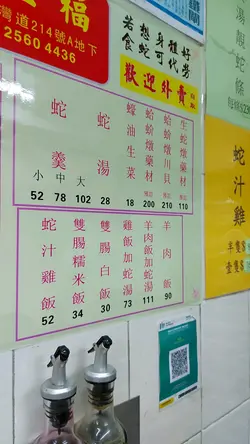 福
灣道214號A地下
2560 4436
若想身體好
食蛇可代勞
歡迎外賣
蛇羹
小 中 大
52 78 102
蛇湯
28
蠔油生菜
18
蛤蚧燉藥材
200
蛤蚧燉川貝
210
生蛇燉藥材
110
蛇汁雞飯
52
雙腸糯米飯
34
雙腸白飯
30
雞飯加蛇湯
73
羊肉飯加蛇湯
111
羊肉飯
90
蛇汁雞
半隻
壹隻